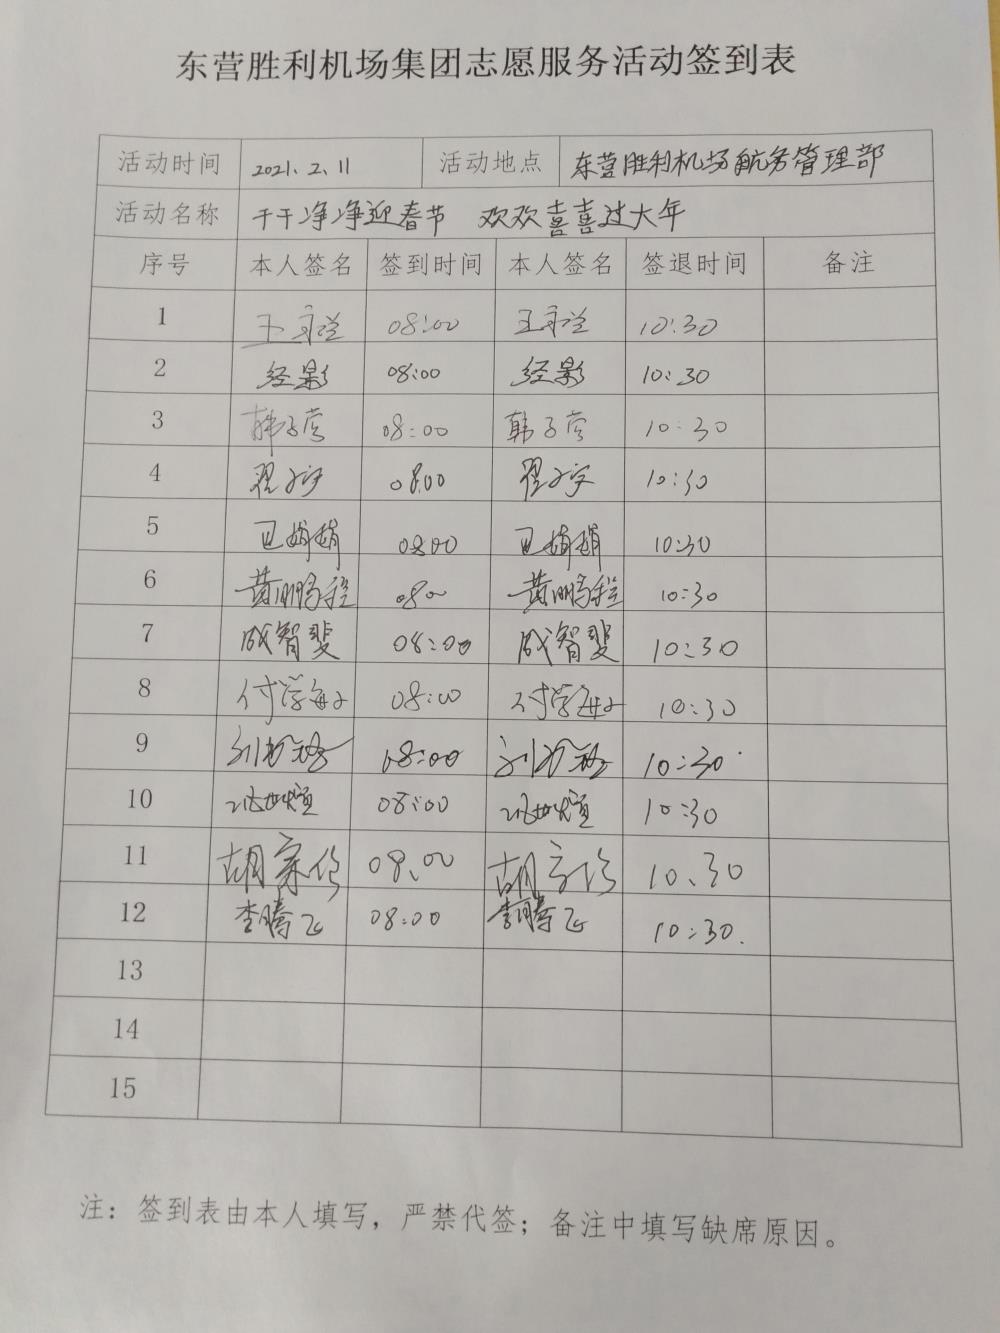 东营胜利机场集团志愿服务活动签到表
活动时间 2021.2.11 活动地点 东营胜利机场航务管理部
活动名称 干干净净迎春节 欢欢喜喜过大年
序号 本人签名 签到时间 本人签名 签退时间 备注
1 08:00 10:30
2 经影 08:00 经影 10:30
3 韩子营 08:00 韩子营 10:30
4 08:00 10:30
5 08:00 10:30
6 黄鹏程 080 黄鹏程 10:30
7 成智斐 08:00 成智斐 10:30
8 08:00 10:30
9 08:00 10:30
10 08:00 10:30
11 08、00 10、30
12 李腾飞 08:00 李腾飞 10:30.
13
14
15
注：签到表由本人填写，严禁代签；备注中填写缺席原因。